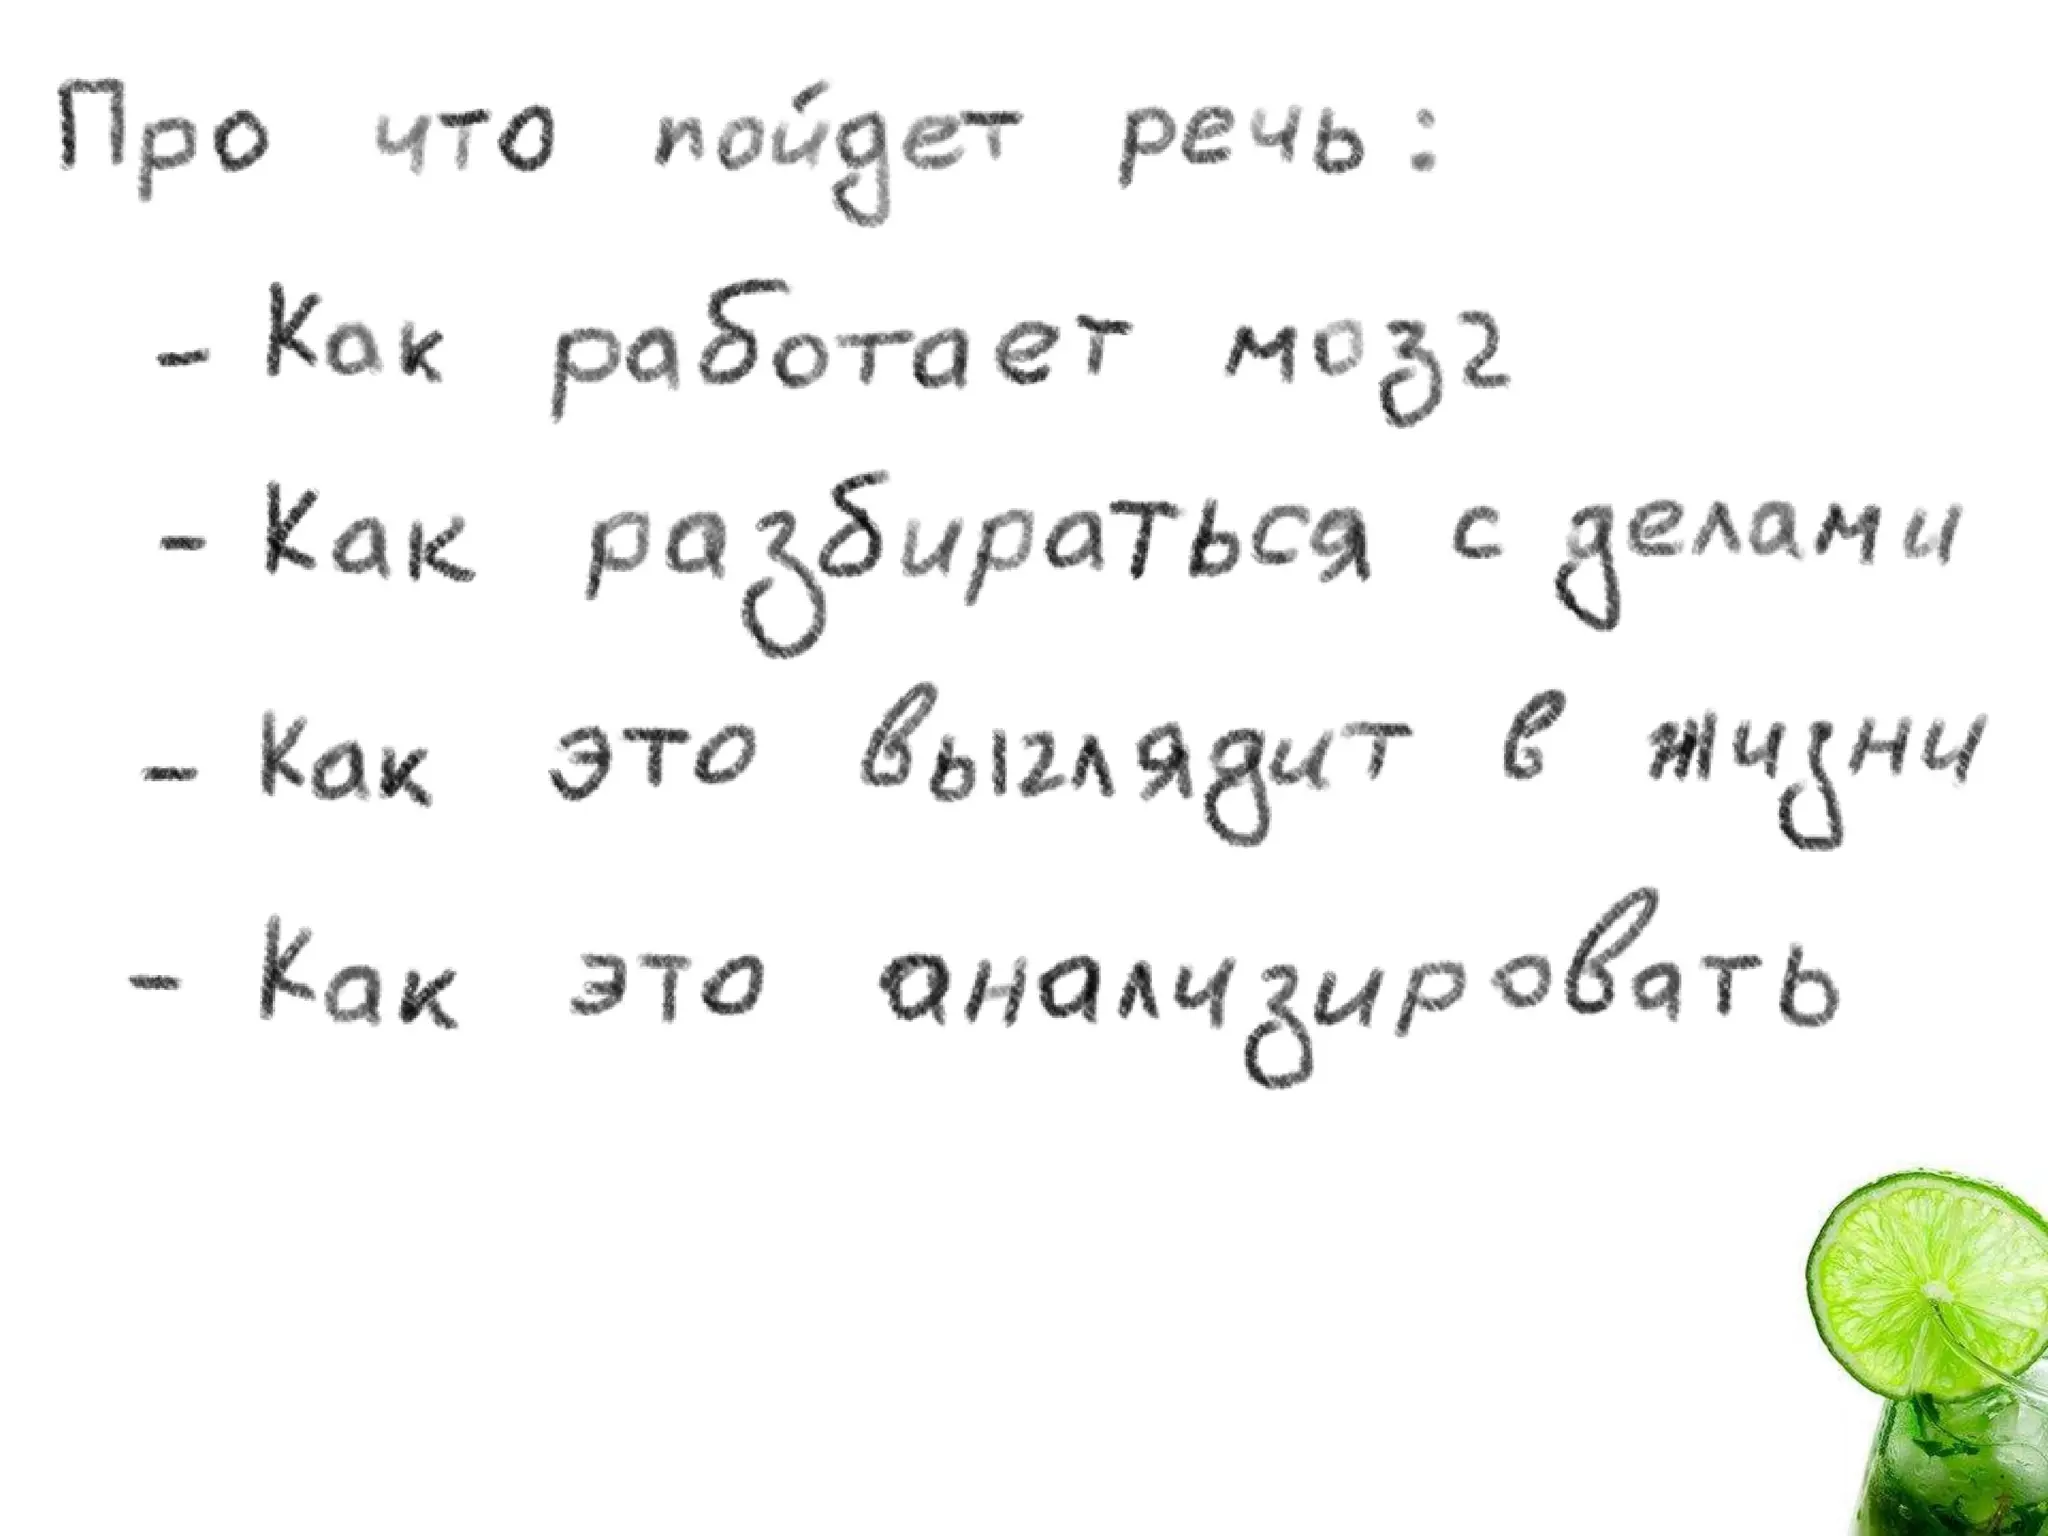 Про что пойдет речь:
- Как работает мозг
- Как разбираться с делами
- Как это выглядит в жизни
- Как это анализировать